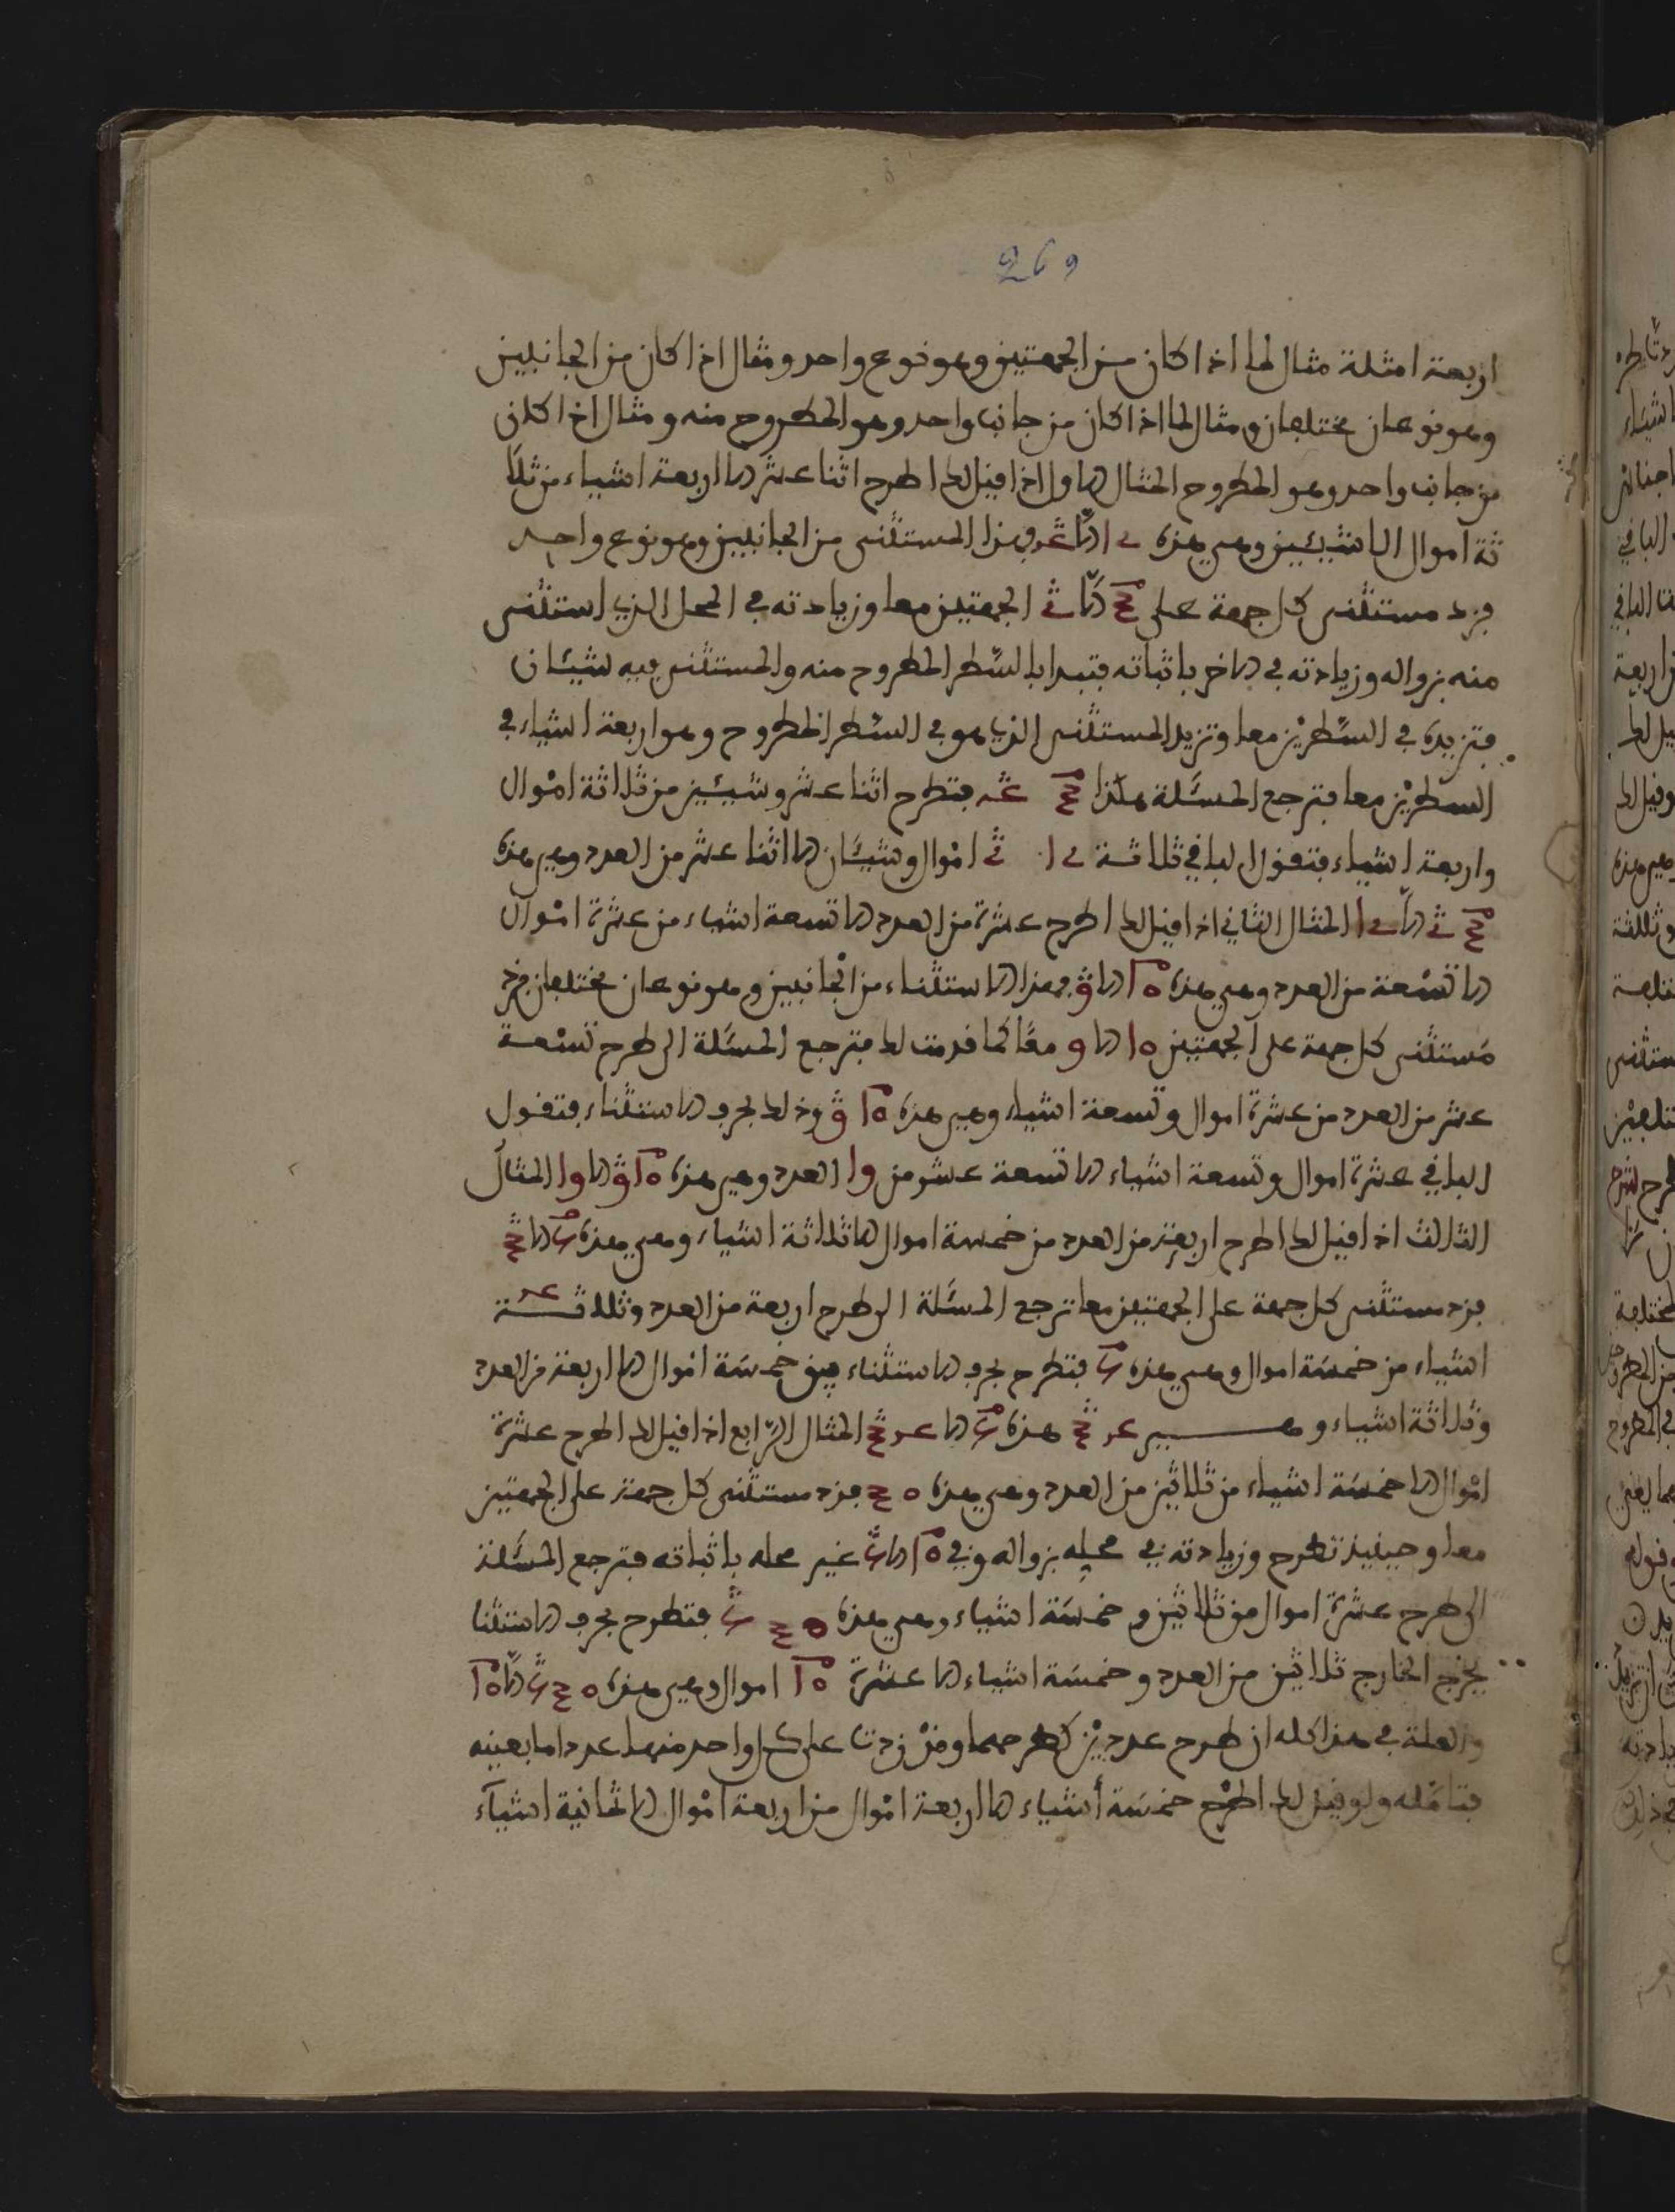 269
اربعة امثلة مثال لما اذا كان من الجهتين وهو نوع واحد ومثال اذا كان من الجانبين
وهو نوعان مختلفان ومثال لما اذا كان من جانب واحد وهو المطروح منه ومثال اذا كان
من جانب واحد وهو المطروح المثال الاول اذا قيل لك اطرح اثنا عشر الا اربعة اشياء من ثلا
ثة اموال الا شيئين وهي هذه فهذا المستثنى من الجانبين وهو نوع واحد
فزد مستثنى كل جهة على الجهتين معا وزيادته في المحل الذي استثنى
منه بزواله وزيادته في الاخر باثباته فتبدا بالشطر المطروح منه والمستثنى فيه شيئان
فتزيده في الشطرين معا وتزيد المستثنى الذي هو في الشطر المطروح وهو اربعة اشياء في
الشطرين معا فترجع المسئلة هكذا فتطرح اثنا عشر وشيئين من ثلاثة اموال
واربعة اشياء فتقول الباقي ثلاثة اموال وشيئان الا اثنا عشر من العدد وهي هذه
المثال الثاني اذا قيل لك اطرح عشرة من العدد الا تسعة اشياء من عشرة اموال
الا تسعة من العدد وهي هذه فهذا الاستثناء من الجانبين وهو نوعان مختلفان فزد
مستثنى كل جهة على الجهتين معا كما قدمت لك فترجع المسئلة الى طرح تسعة
عشر من العدد من عشرة اموال وتسعة اشياء وهي هذه وذلك بحرف الاستثناء فتقول
الباقي عشرة اموال وتسعة اشياء الا تسعة عشر من العدد وهي هذه المثال
الثالث اذا قيل لك اطرح اربعة من العدد من خمسة اموال الا ثلاثة اشياء وهي هذه
فزد مستثنى كل جهة على الجهتين معا ترجع المسئلة الى طرح اربعة من العدد وثلاثة
اشياء من خمسة اموال وهي هذه فتطرح بحرف الاستثناء يبق خمسة اموال الا اربعة من العدد
وثلاثة اشياء وهي هذه المثال الرابع اذا قيل لك اطرح عشرة
اموال الا خمسة اشياء من ثلاثين من العدد وهي هذه فزد مستثنى كل جهة على الجهتين
معا وحينئذ تطرح وزيادته في محله بزواله وفي غير محله باثباته فترجع المسئلة
الى طرح عشرة اموال من ثلاثين وخمسة اشياء وهي هذه فتطرح بحرف الاستثنا
يخرج الخارج ثلاثين من العدد وخمسة اشياء الا عشرة اموال وهي هذه
والعلة في هذا كله ان طرح عددين كطرحهما وقد زدت على كل واحد منهما عددا ما بعينه
فتامله ولو قيل لك اطرح خمسة أشياء الا اربعة اموال من اربعة اموال الا ثمانية اشياء